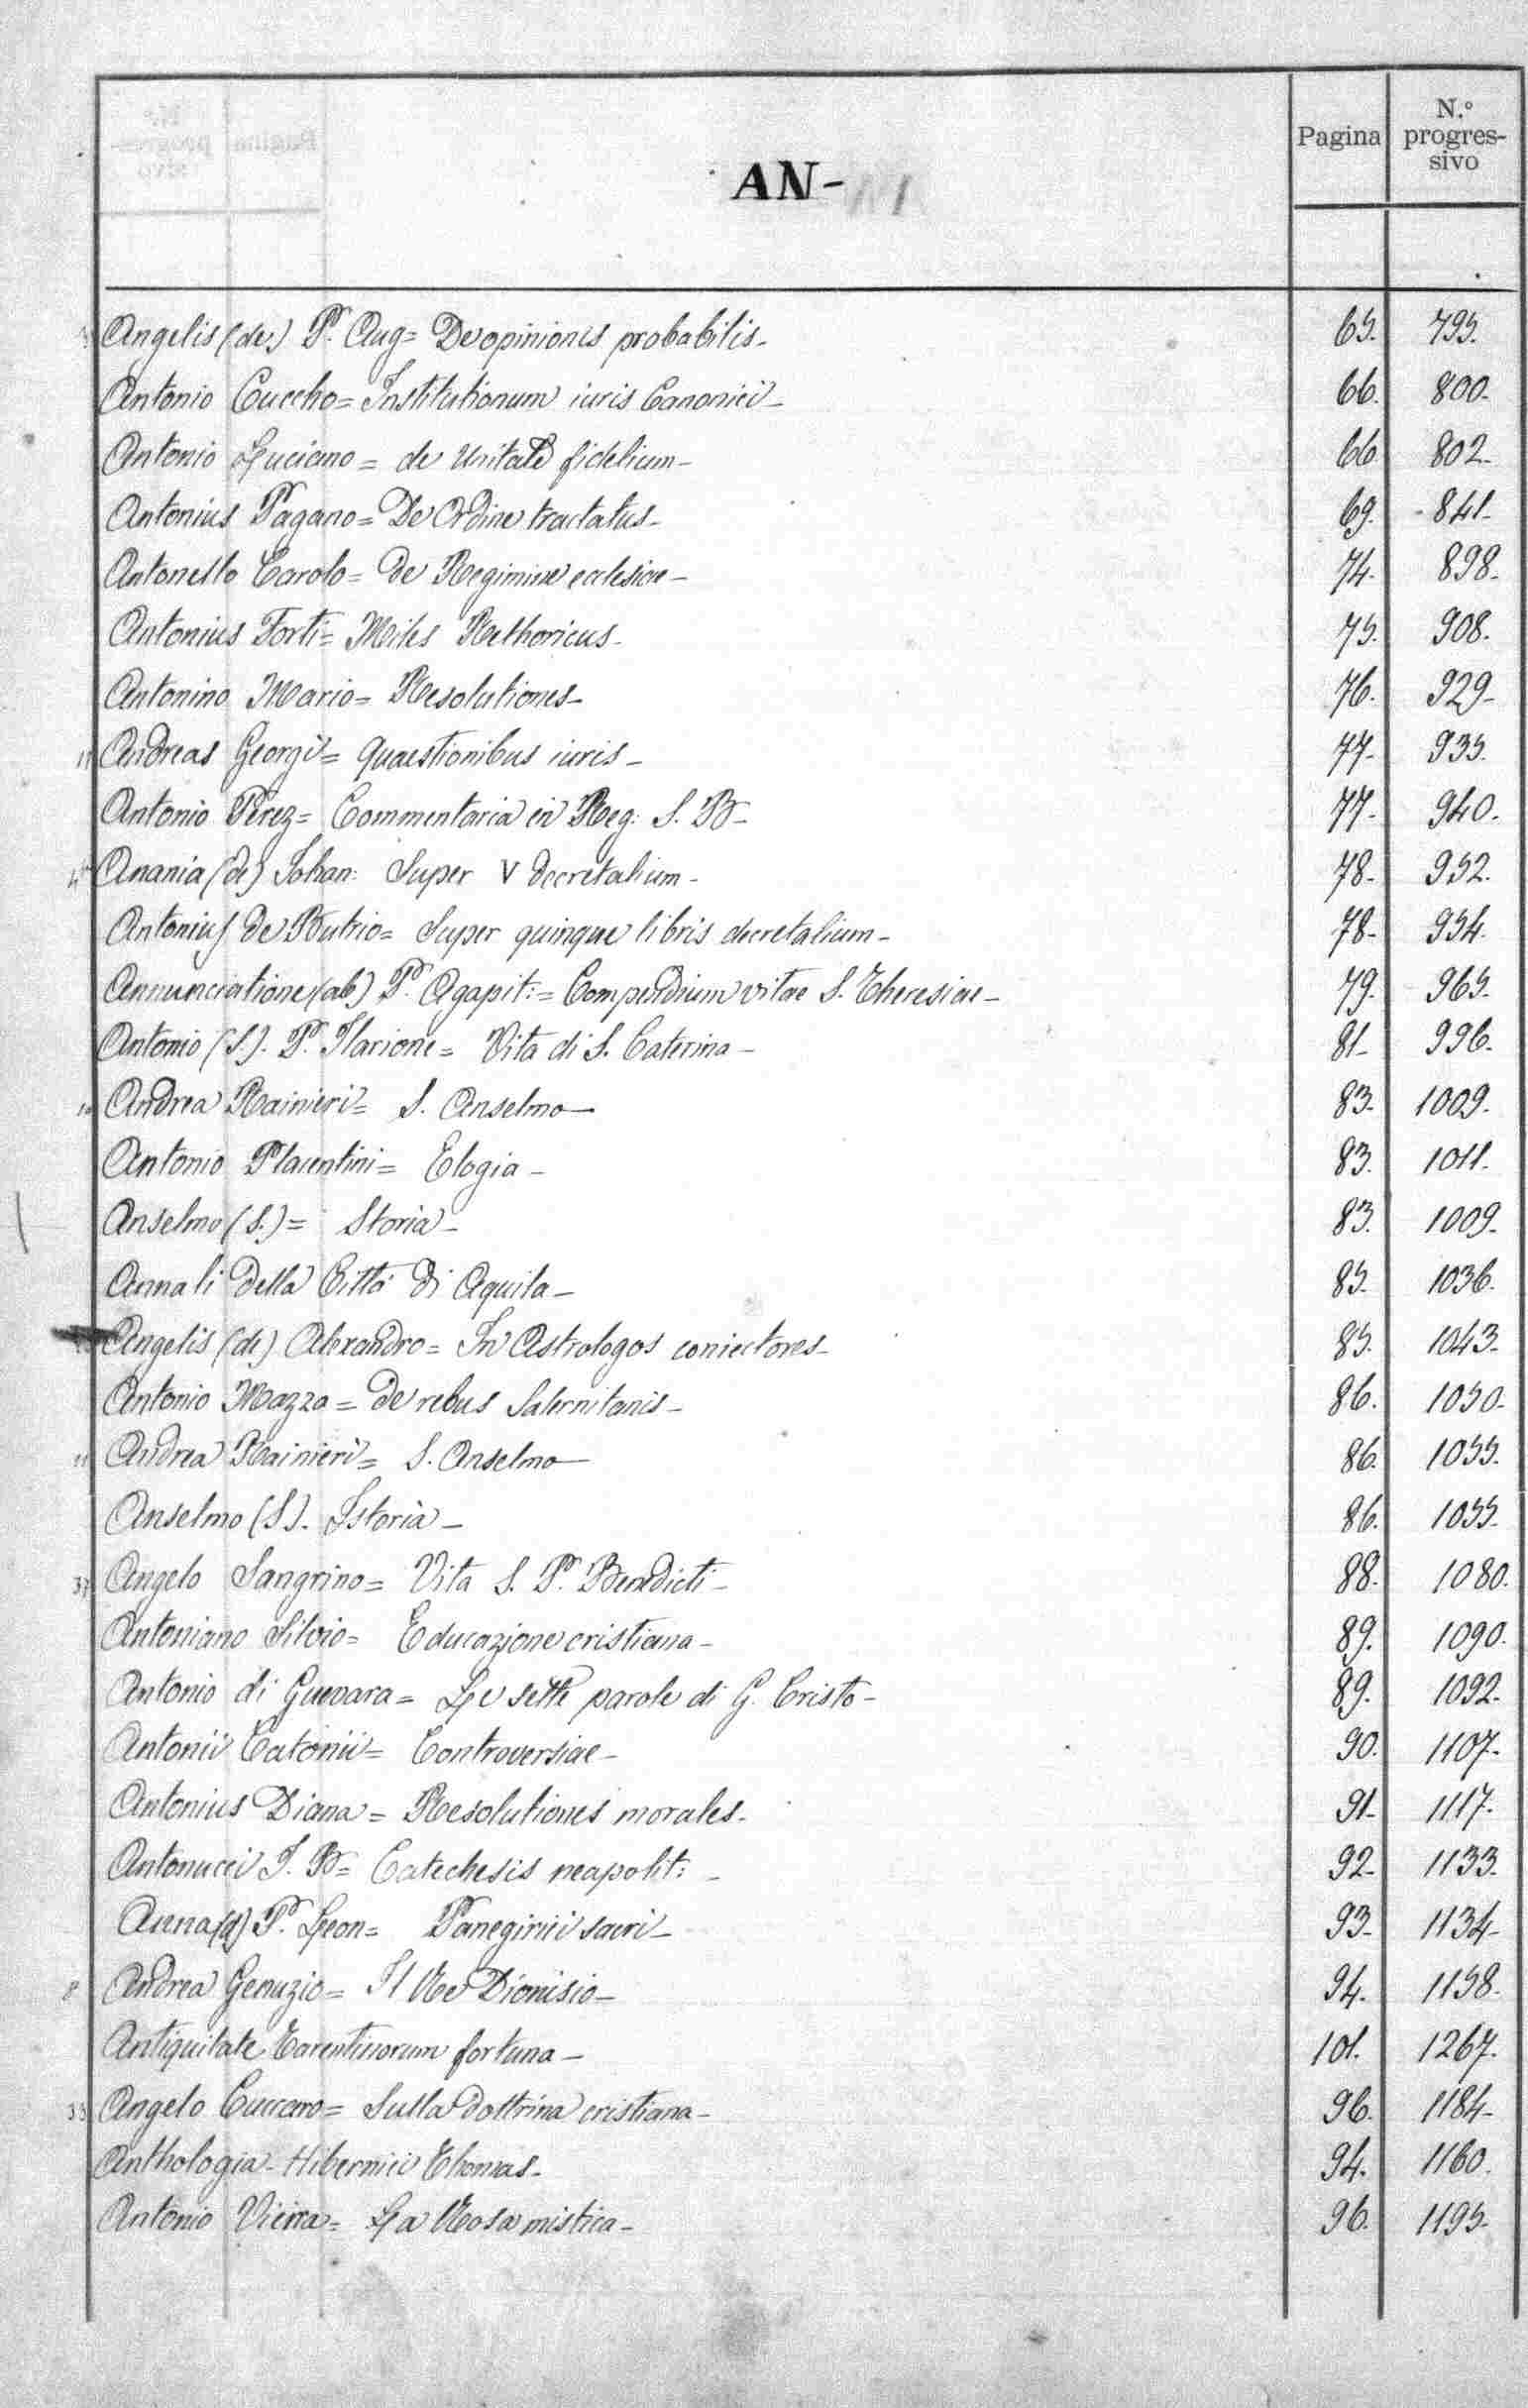 Pagina N.º progres-
sivo
AN-
Angelis (de) P. Aug= De opinionis probabilis- 65. 795.
Antonio Cuccho= Institutionum iuris Canonici- 66. 800-
Antonio Luciano= de Unitate fidelium- 66 802-
Antonius Pagano= De Ordine tractatus- 69. 841-
Antonello Carolo= de Regimine ecclesiae- 74. 898-
Antonius Forti= Miles Rethoricus- 75. 908.
Antonino Mario= Resolutiones- 76. 929-
Andreas Georgi= quaestionibus iuris- 77- 935.
Antonio Perez= Commentaria in Reg: S. B- 77- 940.
Anania (de) Johan: Super V decretalium- 78- 952.
Antonius de Butrio= Super quinque libris decretalium- 78- 954.
Annunciatione (ab) P. Agapit:= Compendium vitae S. Theresiae- 79. 965-
Antonio (S). P. Ilarione= Vita di S. Caterina- 81- 996-
Andrea Rainieri= S. Anselmo- 83- 1009.
Antonio Placentini= Elogia- 83. 1011-
Anselmo (S.)= Storia- 83. 1009-
Annali della Città di Aquila- 85. 1036.
Angelis (de) Alexandro= In Astrologos coniectores- 85. 1043-
Antonio Mazza= de rebus Salernitanis- 86. 1050-
Andrea Rainieri= S. Anselmo- 86. 1055.
Anselmo (S). Istoria- 86. 1055-
37 Angelo Sangrino= Vita S. P. Benedicti- 88. 1080.
Antoniano Silvio= Educazione cristiana- 89. 1090.
Antonio di Guevara= Le sette parole di G. Cristo- 89. 1092-
Antonii Catonii= Controversiae- 90. 1107-
Antonius Diana= Resolutiones morales- 91- 1117.
Antonucci J. B= Catechesis neapolit:- 92- 1133.
Anna (d) P. Leon= Panegirici sacri- 93- 1134-
8 Andrea Genuzio= Il Re Dionisio- 94. 1158.
Antiquitate Tarentinorum fortuna- 101. 1267.
33 Angelo Cuccaro= Sulla dottrina cristiana- 96. 1184-
Anthologia- Hibernici Thomas- 94. 1160.
Antonio Vieira= La Rosa mistica- 96. 1195-